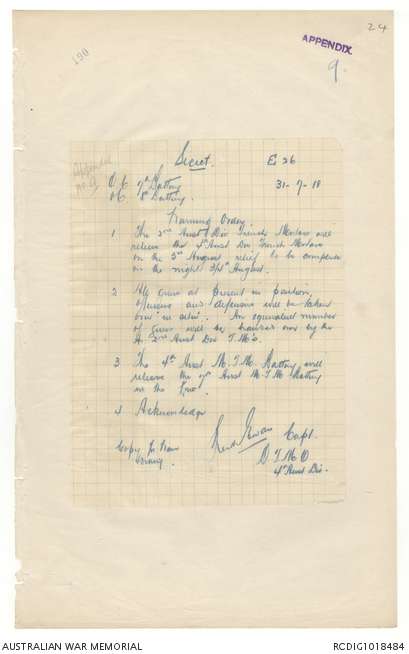 24
APPENDIX
9.
190
Appendix
no. 9
Secret. E 26
O C 7th Battery 31-7-18
OC 8th Battery.
Warning Order
1 The 2nd Aust Div Trench Mortars will
relieve the 4th Aust Div Trench Mortars
on the 3rd August relief to be complete
on the night 3/4th August.
2 All guns at present in position,
offensive and defensive will be taken
over in situ. An equivalent number
of guns will be handed over by the
2nd Aust Div T.M.O.
3 The 4th Aust M.T.M. Battery will
relieve the Aust M.T.M Battery
in the line.
4 Acknowledge
Copy to
Capt.
D T M O
4th Aust Div.
AUSTRALIAN WAR MEMORIAL
RCDIG1018484